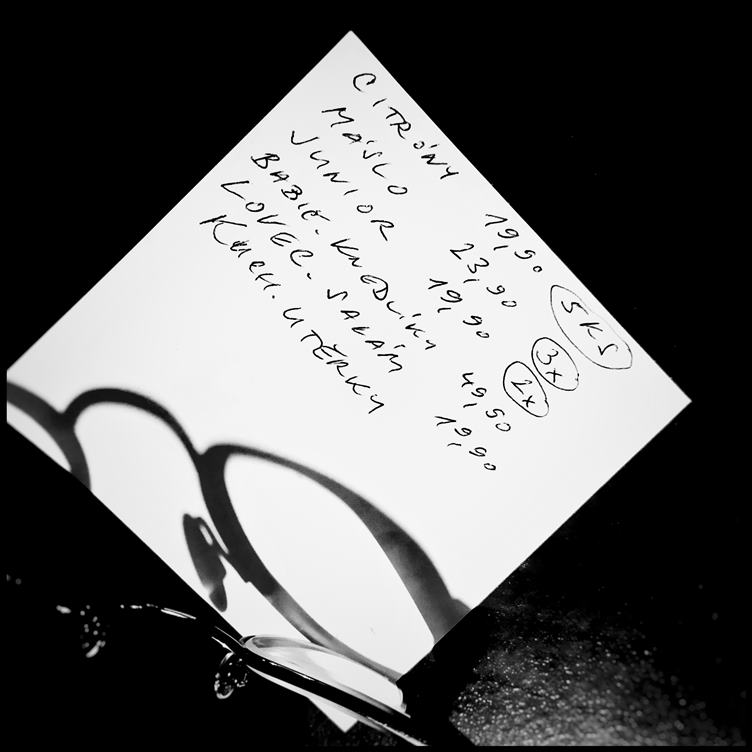 CITRÓNY 19,90 5KS
MÁSLO 23,90 3x
JUNIOR 19,90 2x
BABIČ. KNEDLÍKY 49,50
LOVEC. SALÁM 19,90
KUCH. UTĚRKY